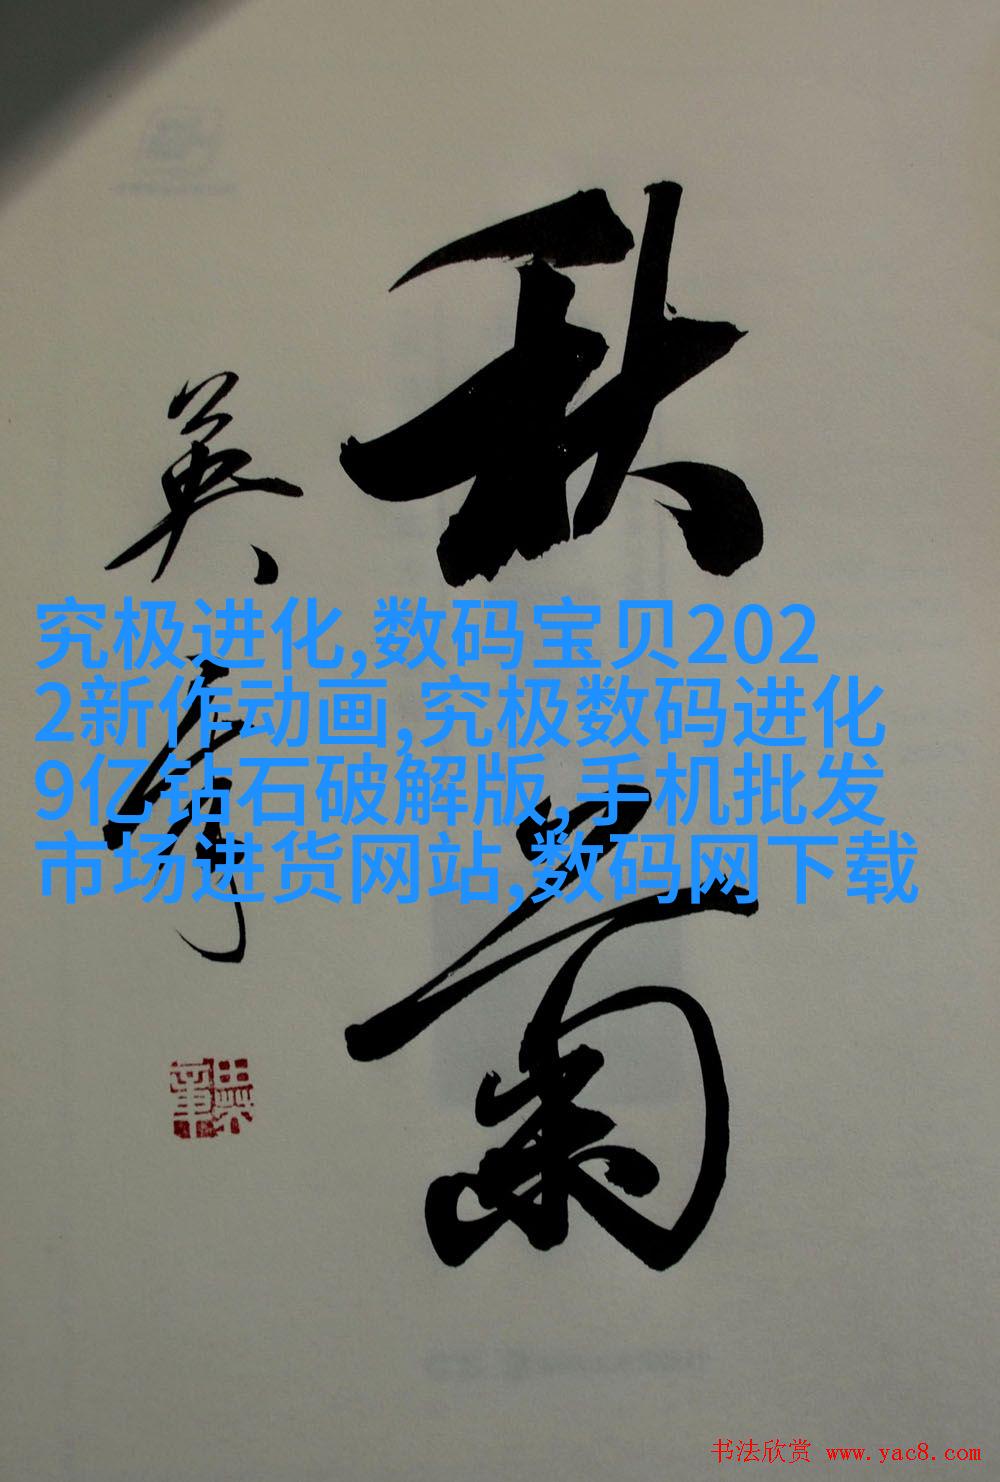 秋菊
英章
究极进化,数码宝贝202
2新作动画,究极数码进化
9亿钻石破解版,手机批发
市场进货网站,数码网下载
书法欣赏 www.yac8.com